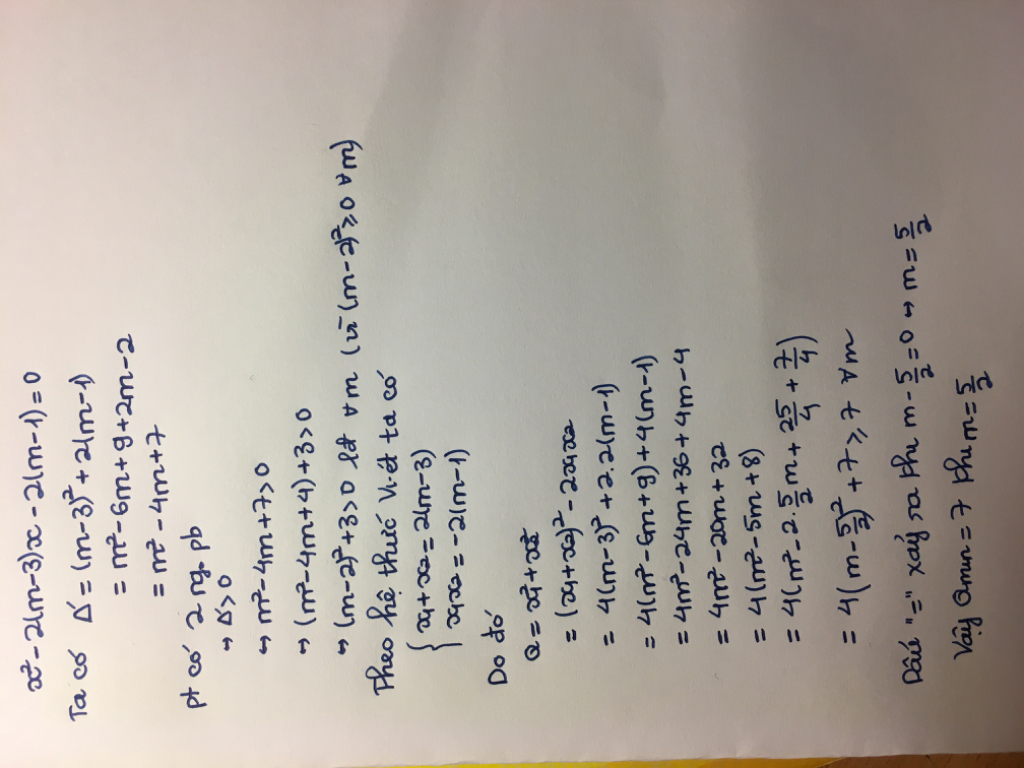 x² - 2(m-3)x - 2(m-1) = 0
Ta có Δ' = (m-3)² + 2(m-1)
= m² - 6m + 9 + 2m - 2
= m² - 4m + 7
pt có 2 ng. pb
↔ Δ' > 0
↔ m² - 4m + 7 > 0
↔ (m² - 4m + 4) + 3 > 0
↔ (m-2)² + 3 > 0 lđ ∀m (vì (m-2)² ≥ 0 ∀m)
Theo hệ thức Vi-ét ta có
{ x₁ + x₂ = 2(m-3)
{ x₁x₂ = -2(m-1)
Do đó
Q = x₁² + x₂²
= (x₁ + x₂)² - 2x₁x₂
= 4(m-3)² + 2.2(m-1)
= 4(m² - 6m + 9) + 4(m-1)
= 4m² - 24m + 36 + 4m - 4
= 4m² - 20m + 32
= 4(m² - 5m + 8)
= 4(m² - 2.5/2 m + 25/4 + 7/4)
= 4(m - 5/2)² + 7 ≥ 7 ∀m
Dấu "=" xảy ra khi m - 5/2 = 0 ↔ m = 5/2
Vậy Qmin = 7 khi m = 5/2